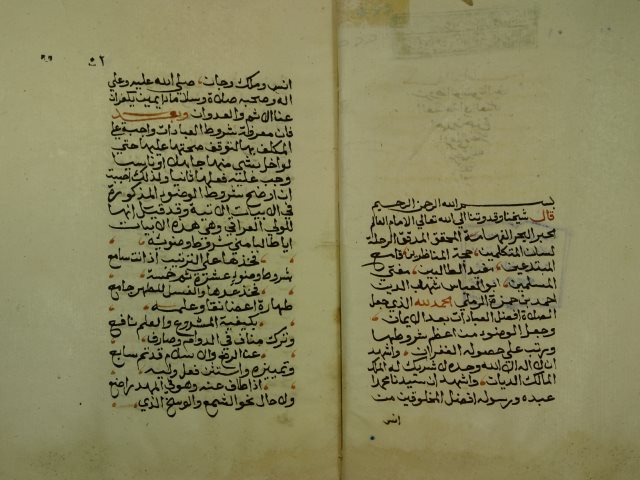 بسم الله الرحمن الرحيم
قال شيخنا وقدوتنا الى الله تعالى الامام العالم
الحبر البحر الفهامة المحقق المدقق الرحلة
لسان المتكلمين حجة المناظرين قامع
المبتدعين مفيد الطالبين مفتي
المسلمين ابو العباس شهاب الدين
احمد بن حمزة الرملي الحمد لله الذي جعل
الصلاة افضل العبادات بعد الايمان
وجعل الوضوء من اعظم شروطها
ورتب على حصوله الغفران واشهد
ان لا اله الا الله وحده لا شريك له الملك
المالك الديان واشهد ان سيدنا محمدا
عبده ورسوله افضل المخلوقين من
انس
٢
انس وملك وجان صلى الله عليه وعلى
اله وصحبه صلاة وسلاما دايمين يكفران
عنا الاثم والعدوان وبعد
فان معرفة شروط العبادات واجبة على
المكلف بها لتوقف صحتها عليها حتى
لو اخل بشي منها جاهلا او ناسيا
وجب عليه فعلها ثانيا ولذلك
ان اوضح شروط الوضوء المذكورة
في الابيات الاتية وقد قيل انها
للولي العراقي وهي هذه الابيات
ايا طالبا مني شروط وضوئه
فخذها على الترتيب اذ انت سامع
شروط وضوء عشرة ثم خمسة
فخذ عدها والغسل للطهر جامع
طهارة اعضا نقا وعلمه
بكيفية المشروع والعلم نافع
وترك مناف في الدوام وصارف
عن الرفع والاسلام قد تم سابع
وتمييزه واستثن فعل وليه
اذا طاف عنه وهو في المهد راضع
ولا حال نحو الشمع والوسخ الذي